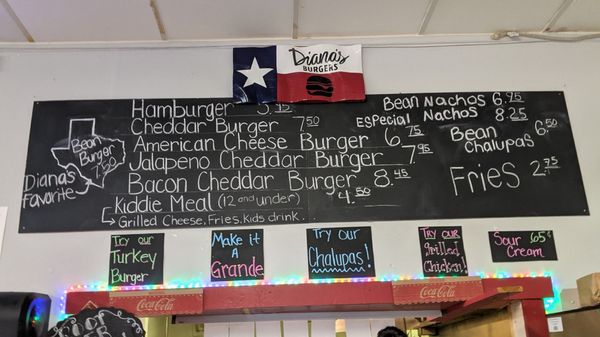 Diana's
BURGERS
Hamburger
Cheddar Burger 7.50
American Cheese Burger 6.75
Jalapeno Cheddar Burger 7.95
Bacon Cheddar Burger 8.45
Kiddie Meal (12 and under) 4.50
Grilled Cheese, Fries, Kids drink
Bean Nachos 6.95
Especial Nachos 8.25
Bean Chalupas 6.50
Fries 2.75
Bean
Burger
7.50
Diana's
Favorite
Try our
Turkey
Burger
Make it
a
Grande
Try our
Chalupas!
Try our
Grilled
Chicken!
Sour $.65
Cream
Coca-Cola
Coca-Cola